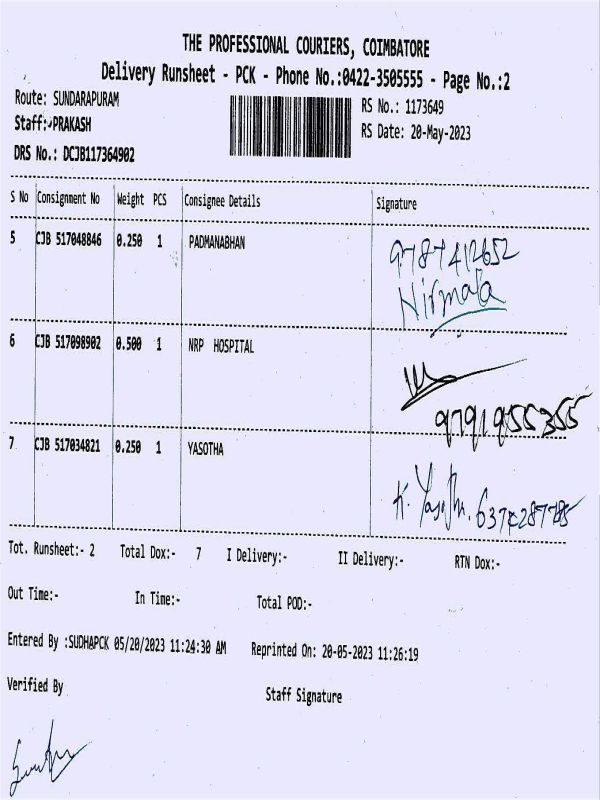 THE PROFESSIONAL COURIERS, COIMBATORE
Delivery Runsheet - PCK - Phone No.:0422-3505555 - Page No.:2
Route: SUNDARAPURAM
RS No.: 1173649
Staff: PRAKASH
RS Date: 20-May-2023
DRS No.: DCJB117364902
S No Consignment No Weight PCS Consignee Details Signature
5 CJB 517048846 0.250 1 PADMANABHAN
9787412652
Nirmala
6 CJB 517098902 0.500 1 NRP HOSPITAL
9791955355
7 CJB 517034821 0.250 1 YASOTHA
K.
Tot. Runsheet:- 2 Total Dox:- 7 I Delivery:- II Delivery:- RTN Dox:-
Out Time:- In Time:- Total POD:-
Entered By :SUDHAPCK 05/20/2023 11:24:30 AM Reprinted On: 20-05-2023 11:26:19
Verified By Staff Signature